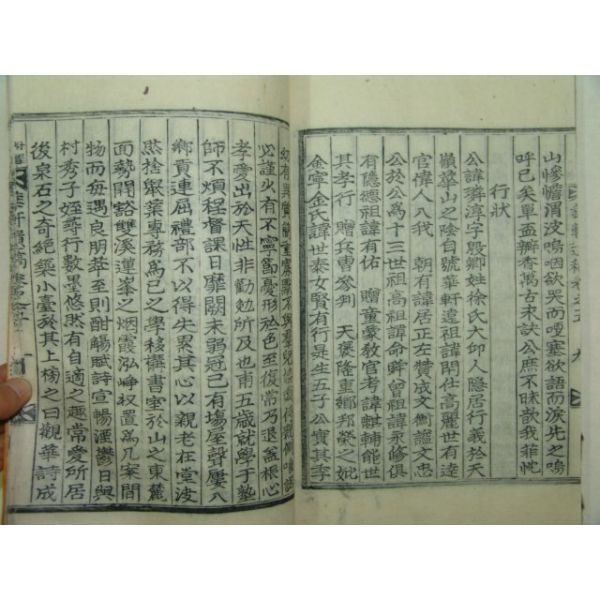 山慘憺消波嗚咽欲哭而哽塞欲語而淚先之嗚
呼已矣單盃瓣香萬古永訣公庶不昧歆我菲忱
行狀
公諱璘淳字殷卿姓徐氏大邱人隱居行義於天
嶺華山之陰自號華軒遠祖諱閈仕高麗世有達
官偉人入我 朝有諱居正左贊成文衡諡文忠
公於公爲十三世祖諱命 曾祖諱 修俱
有隱德祖諱有 贈童蒙敎官考諱 輔能世
其孝行 贈兵曹參判 天褒隆重鄕邦榮之妣
金寧金氏諱世泰女賢有行是生五子公實其季
幼有異質 重 不與羣兒
必謹火有不寧 憂形於色至復常乃退盖根心
孝愛出於天性非勸勉所及也甫五歲就學于塾
師不煩程督課日靡闕未弱冠已有場屋聲屢入
鄕貢連屈禮部不以得失累其心以親老在堂浚
然捨擧業專務爲已之學移構書室於山之東麓
面勢闊豁雙溪蓮峯之烟霞泓崢収置爲几案間
物而每遇良朋萃至則酣觴賦詩宣暢湮鬱日與
村秀子姪尋行數墨悠然有自適之趣常愛所居
後泉石之奇絶築小臺於其上榜之曰觀華詩成